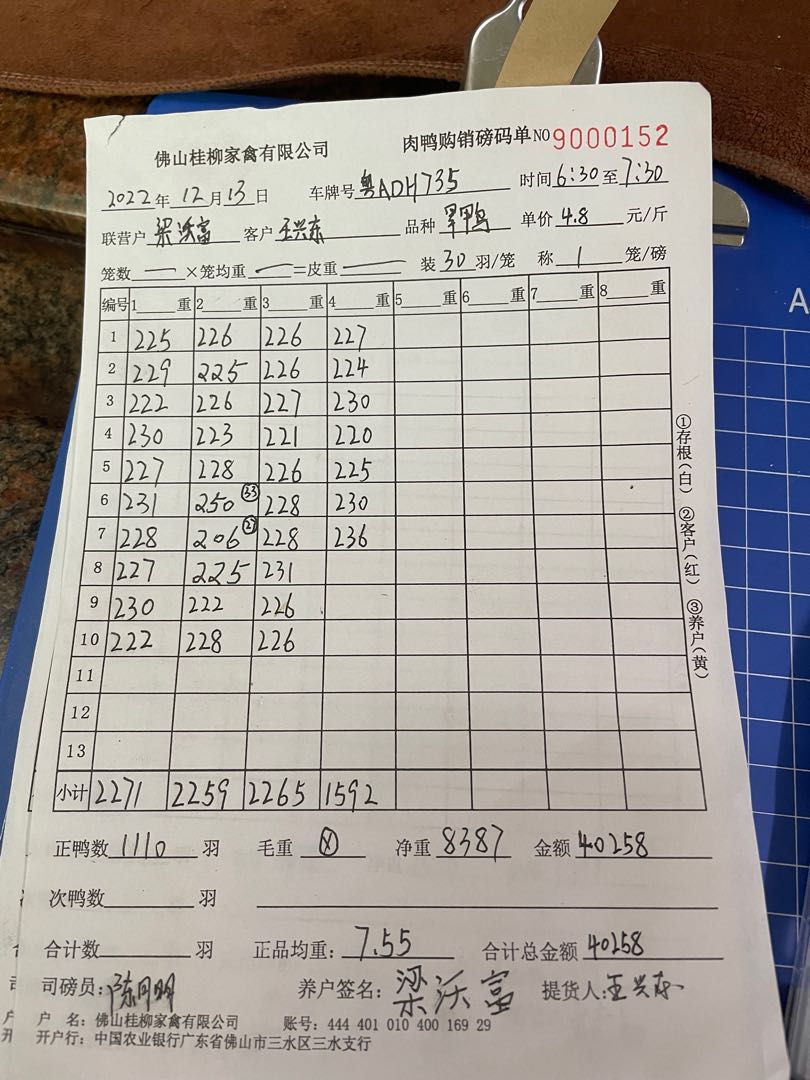 佛山桂柳家禽有限公司 肉鸭购销磅码单 NO 9000152
2022年 12月 13日 车牌号 粤ADH735 时间 6:30 至 7:30
联营户 梁沃富 客户 王兴东 品种 旱鸭 单价 4.8 元/斤
笼数 — ×笼均重 — =皮重 — 装 30 羽/笼 称 1 笼/磅
编号 1 重 2 重 3 重 4 重 5 重 6 重 7 重 8 重
1 225 226 226 227
2 229 225 226 224
3 222 226 227 230
4 230 223 221 220
5 227 228 226 225
6 231 250 ㉝ 228 230
7 228 206 ㉗ 228 236
8 227 225 231
9 230 222 226
10 222 228 226
11
12
13
小计 2271 2259 2265 1592
正鸭数 1110 羽 毛重 ⓧ 净重 8387 金额 40258
次鸭数 羽
合计数 羽 正品均重: 7.55 合计总金额 40258
司磅员: 养户签名: 梁沃富 提货人: 王兴东
户 名: 佛山桂柳家禽有限公司 账号: 444 401 010 400 169 29
开户行: 中国农业银行广东省佛山市三水区三水支行
①存根(白) ②客户(红) ③养户(黄)
A